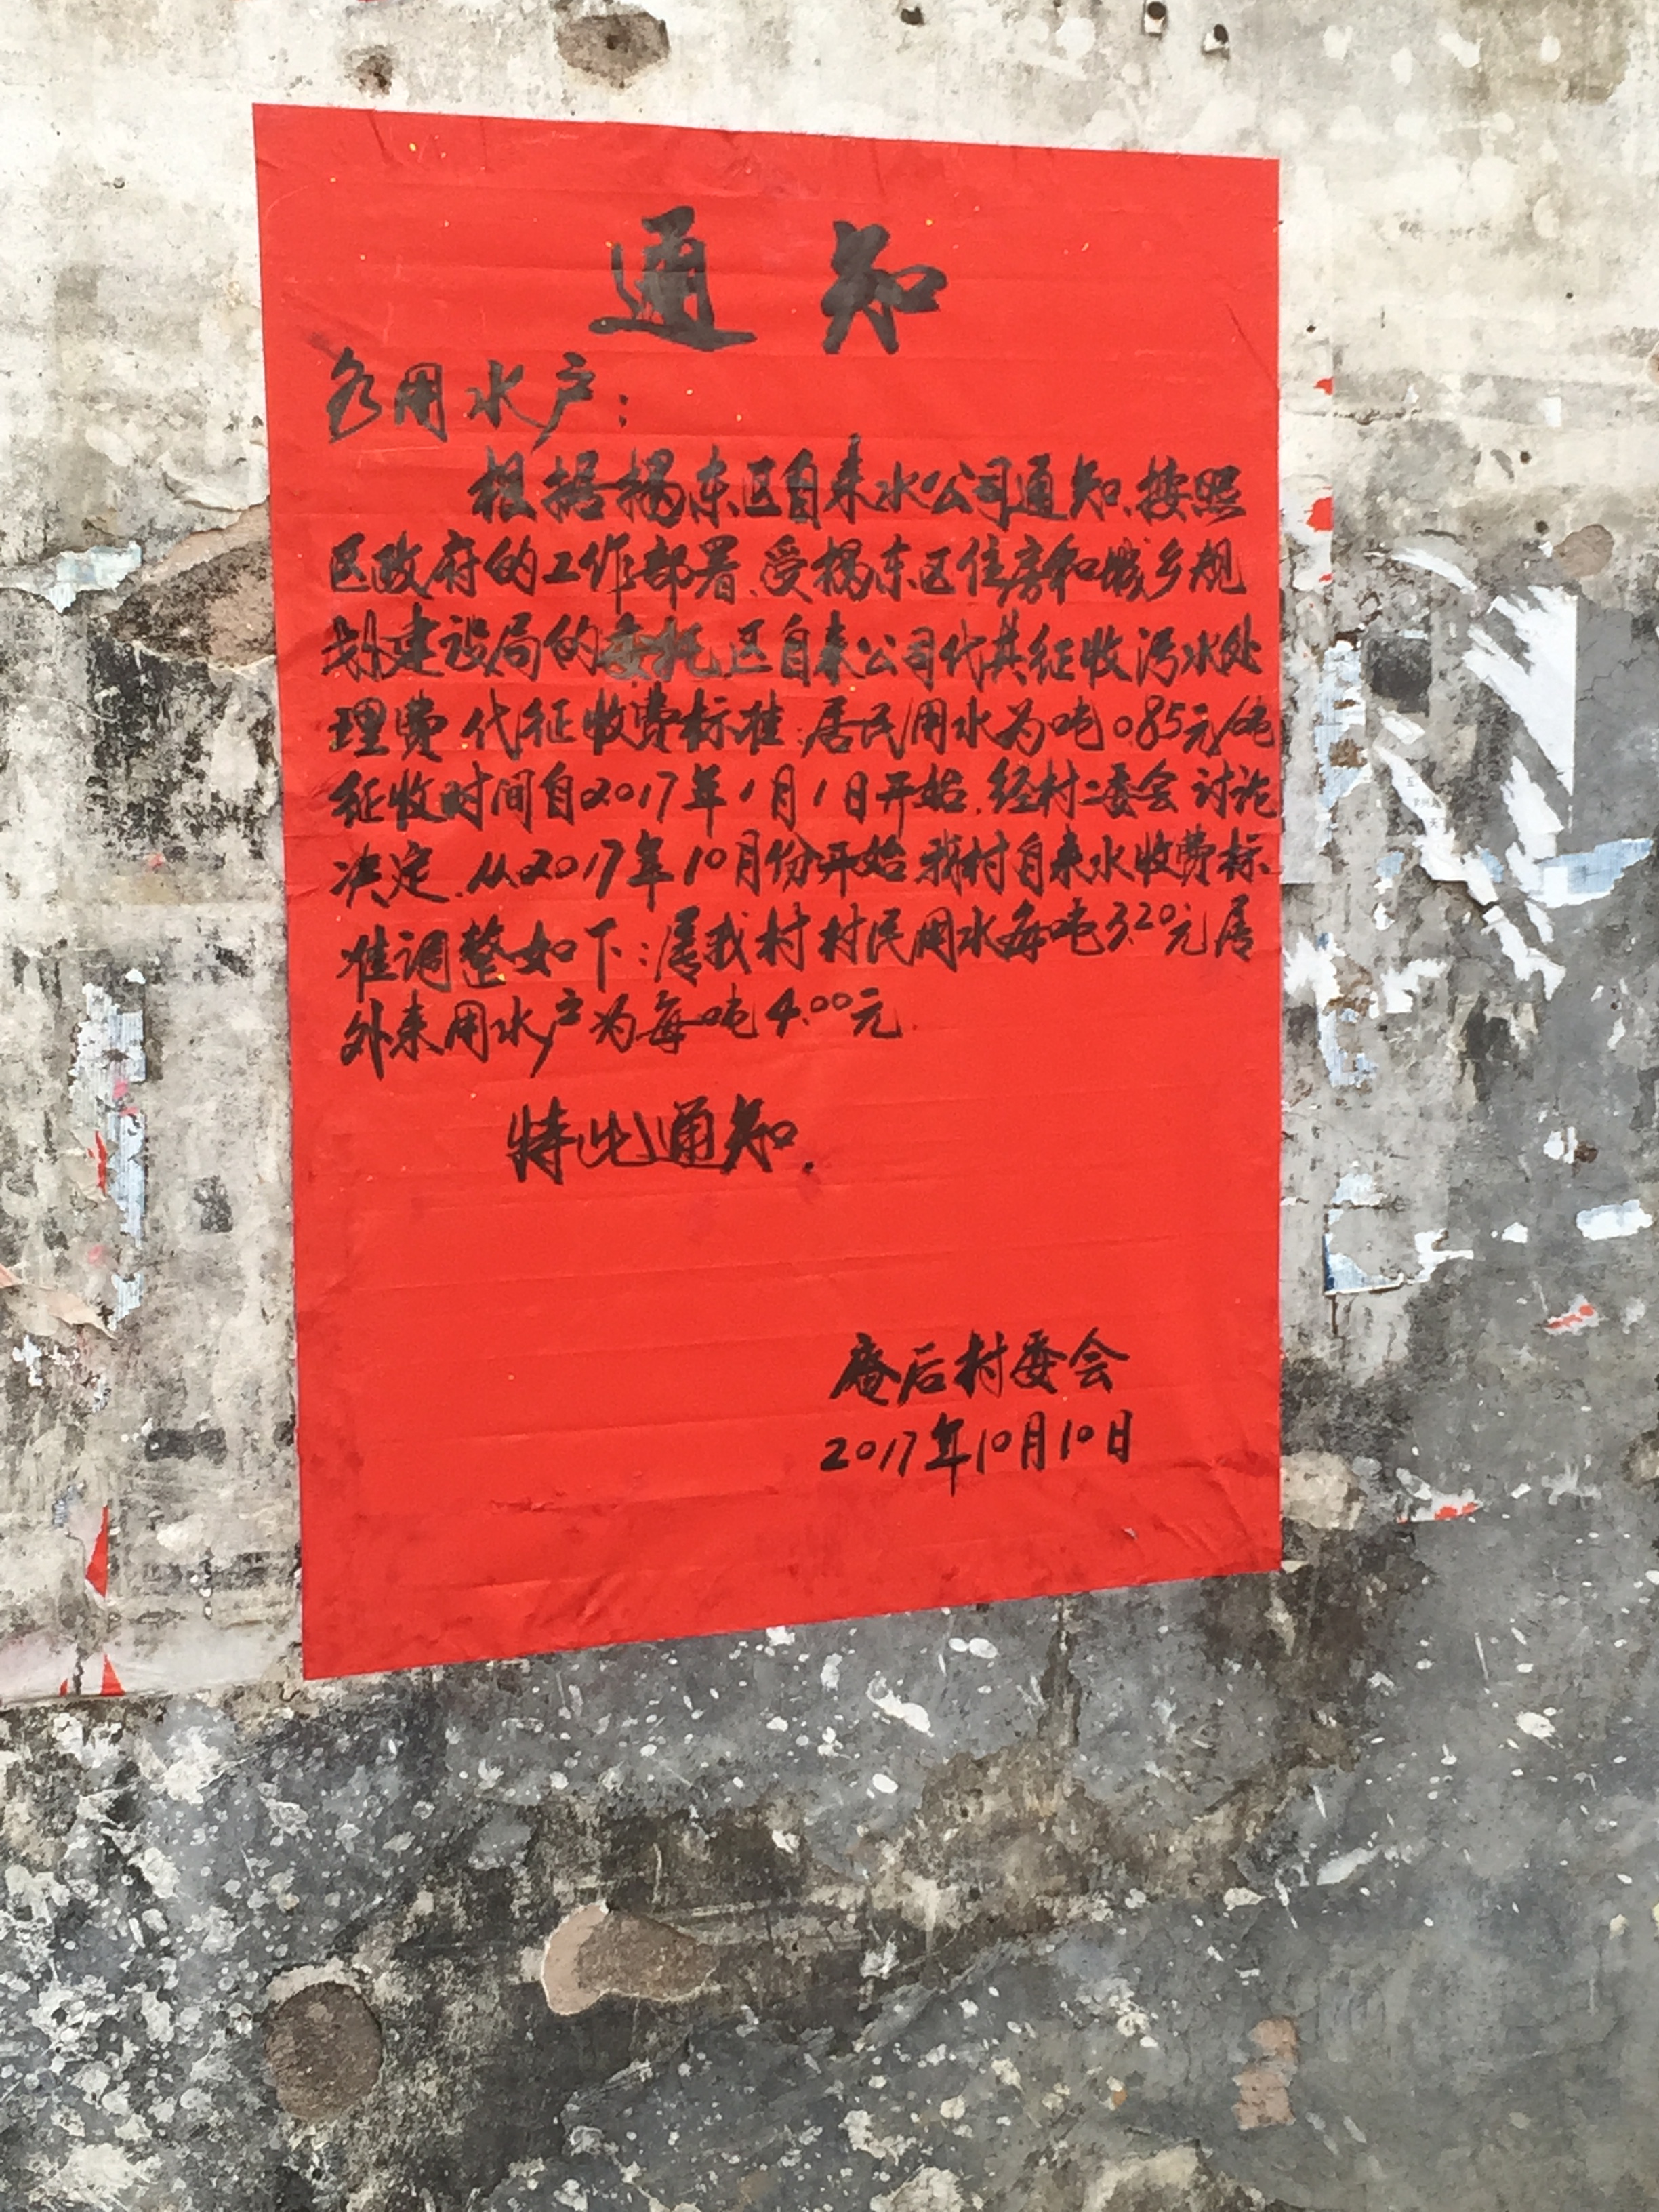 通知
各用水户：
根据揭东区自来水公司通知、按照
区政府的工作部署、受揭东区住房和城乡规
划建设局的委托、区自来公司代其征收污水处
理费 代征收费标准：居民用水为吨0.85元/吨
征收时间自2017年1月1日开始、经村二委会讨论
决定、从2017年10月份开始 我村自来水收费标
准调整如下：属我村村民用水每吨3.20元 属
外来用水户为每吨4.00元.
特此通知.
庵后村委会
2017年10月10日